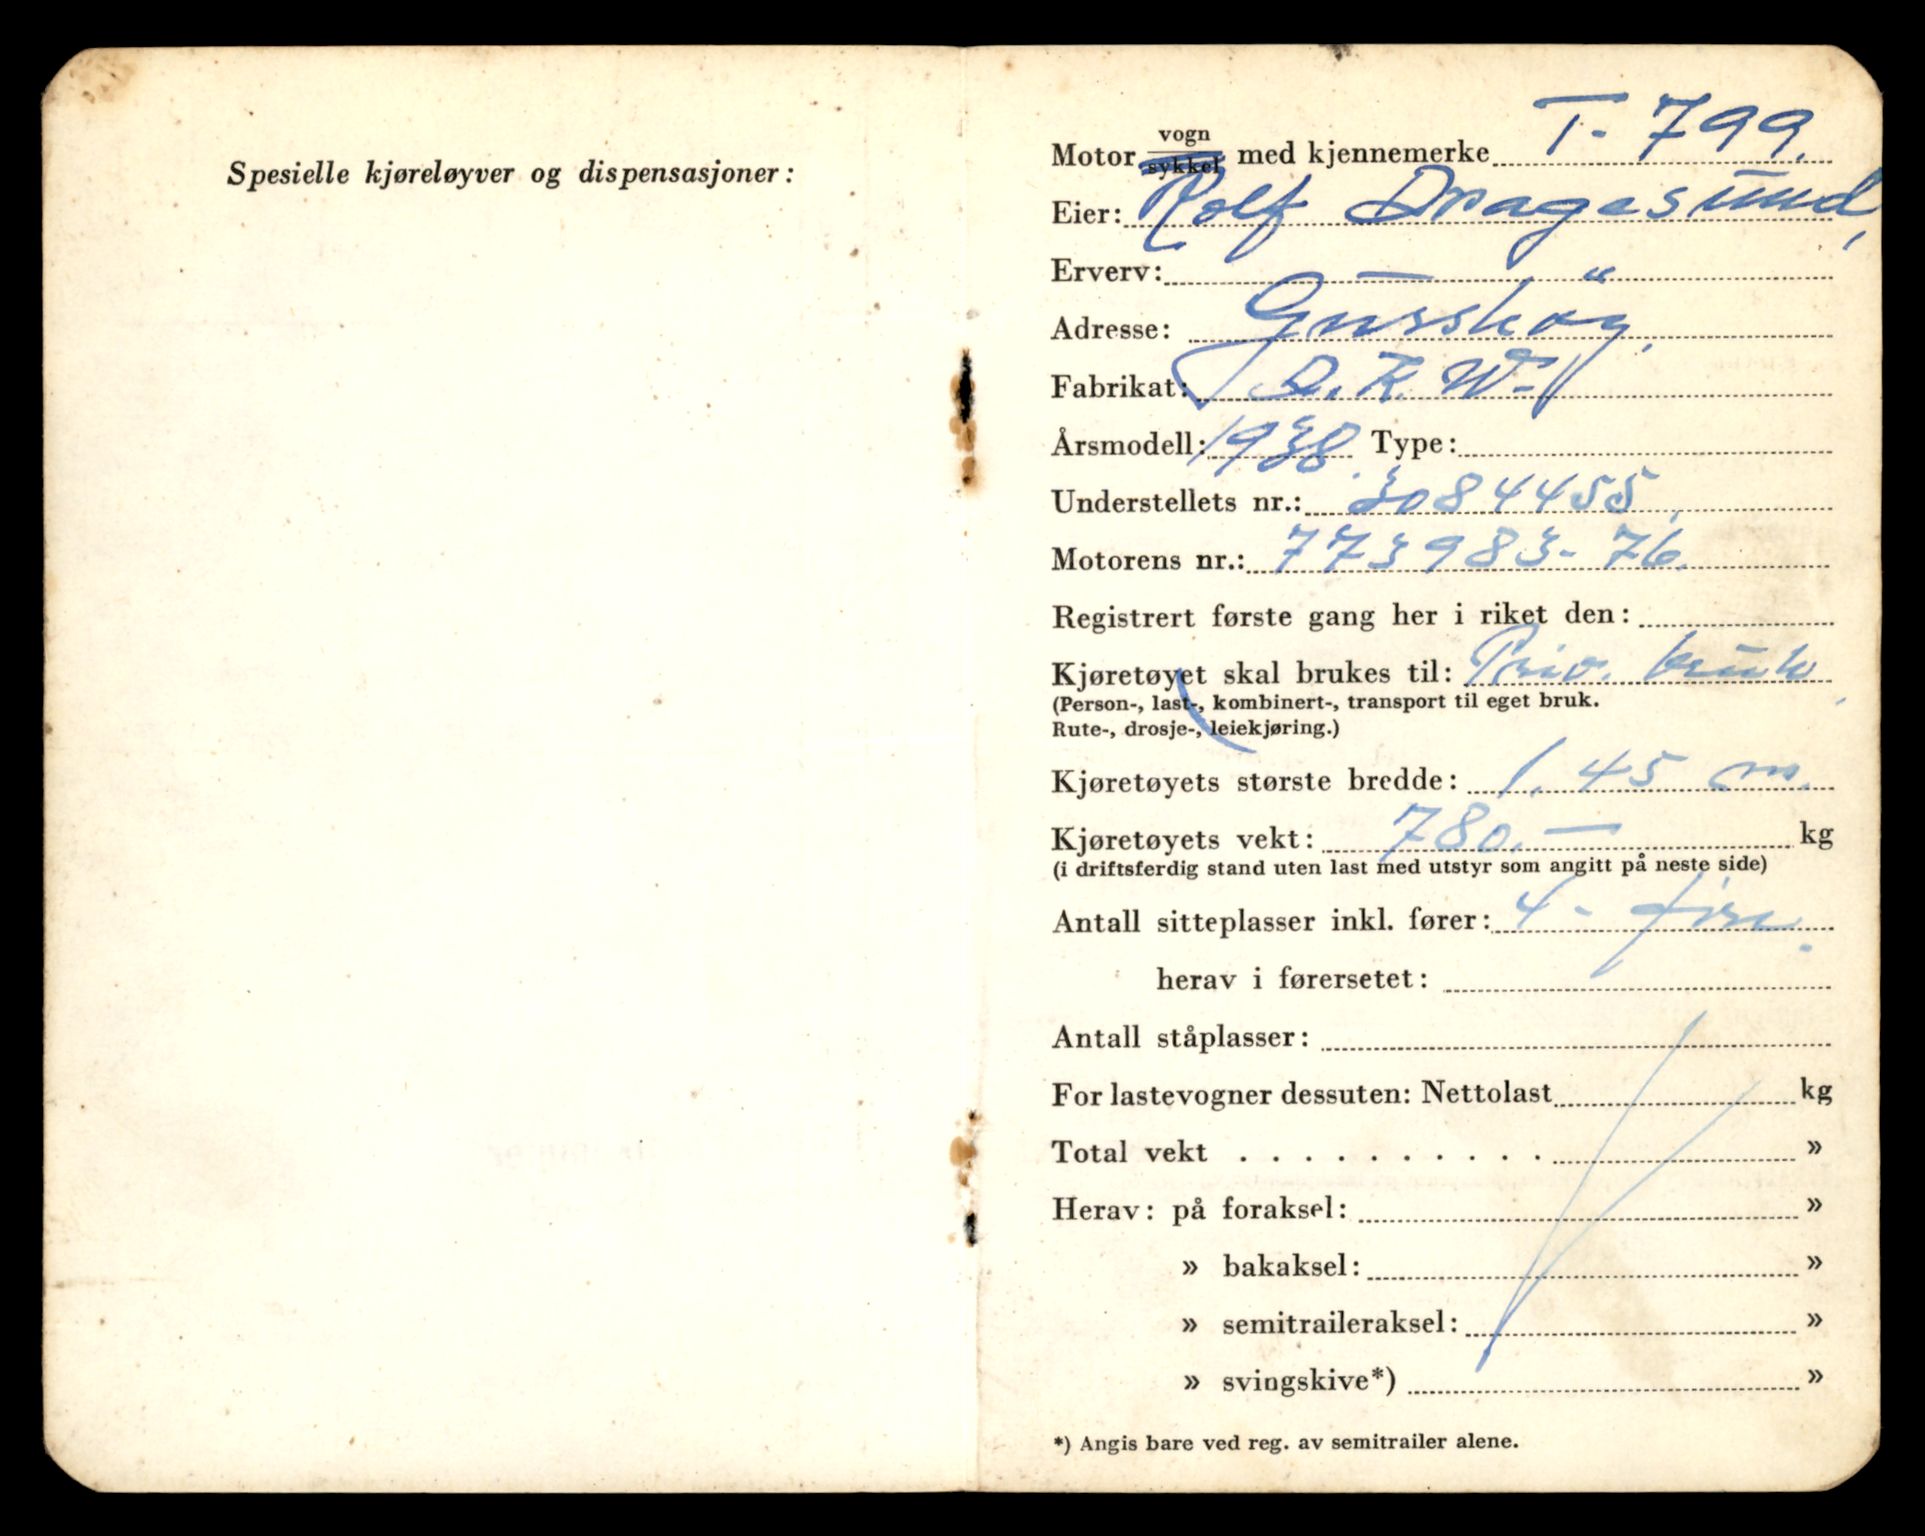 Spesielle kjøreløyver og dispensasjoner:
Motor vogn sykkel med kjennemerke T- 799.
Eier: Rolf Dragesund,
Erverv: — "
Adresse: Gursköy.
Fabrikat: D.K.W-
Årsmodell: 1938. Type:
Understellets nr.: 3084455.
Motorens nr.: 773983- 76.
Registrert første gang her i riket den:
Kjøretøyet skal brukes til: Priv. bruk
(Person-, last-, kombinert-, transport til eget bruk.
Rute-, drosje-, leiekjøring.)
Kjøretøyets største bredde: 1.45 m.
Kjøretøyets vekt: 780.— kg
(i driftsferdig stand uten last med utstyr som angitt på neste side)
Antall sitteplasser inkl. fører: 4 - fire.
herav i førersetet:
Antall ståplasser:
For lastevogner dessuten: Nettolast kg
Total vekt . . . . . . . . . . »
Herav: på foraksel: »
» bakaksel: »
» semitraileraksel: »
» svingskive*) »
*) Angis bare ved reg. av semitrailer alene.